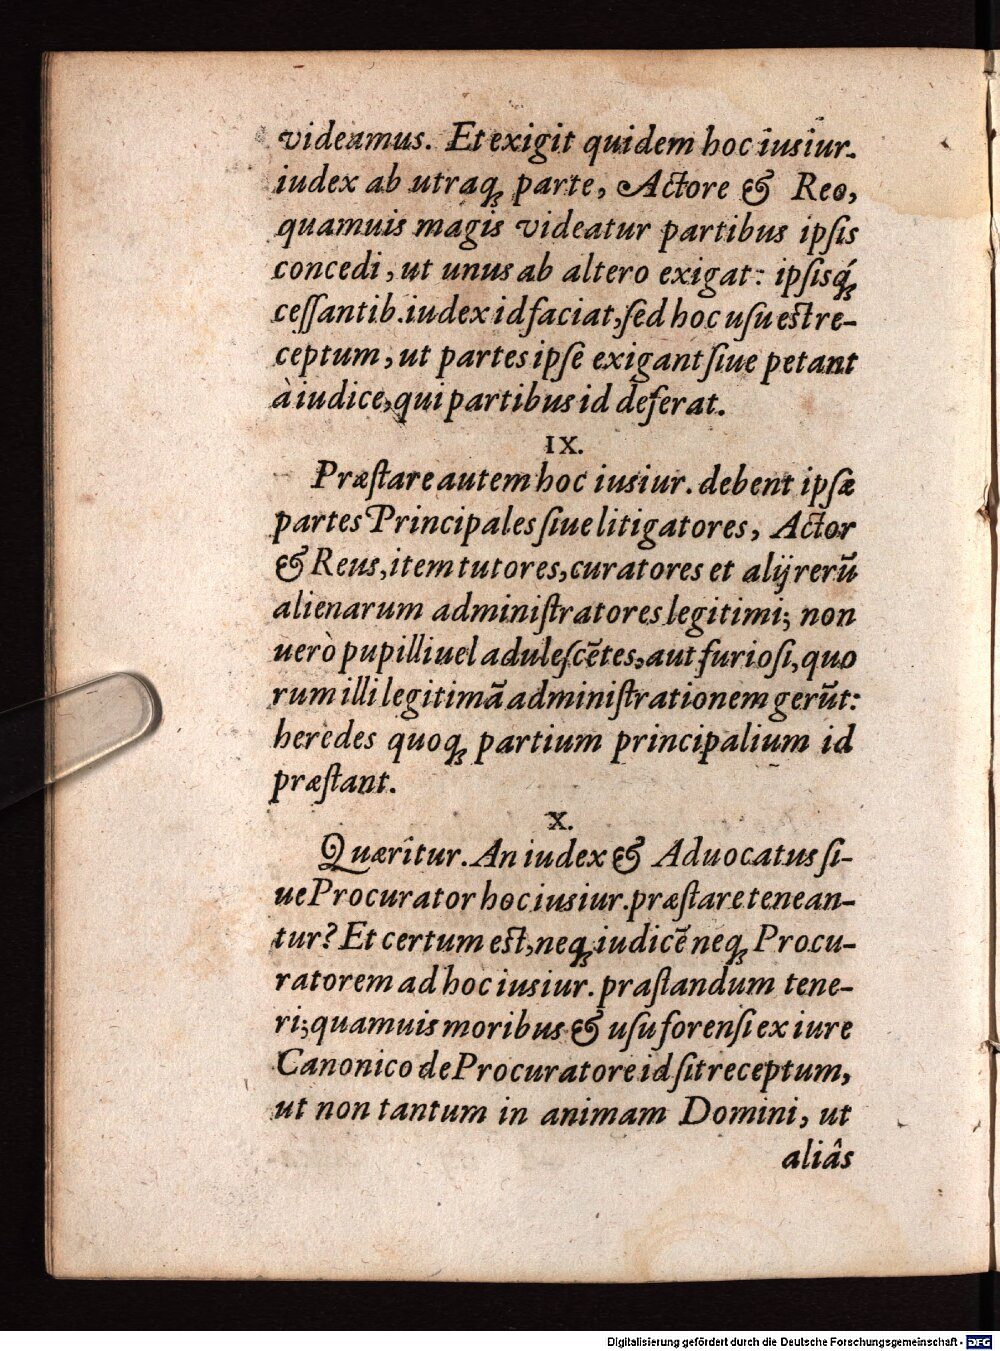 videamus. Et exigit quidem hoc iusiur.
iudex ab utraq; parte, Actore & Reo,
quamuis magis videatur partibus ipſis
concedi, ut unus ab altero exigat: ipſisq́;
ceſſantib. iudex id faciat, ſed hoc uſu est re-
ceptum, ut partes ipſe exigant ſiue petant
à iudice, qui partibus id deferat.
IX.
Præſtare autem hoc iusiur. debent ipſæ
partes Principales ſiue litigatores, Actor
& Reus, item tutores, curatores et alij rerū
alienarum adminiſtratores legitimi; non
uerò pupilli uel aduleſcētes, aut furioſi, quo
rum illi legitimā adminiſtrationem gerūt:
heredes quoq; partium principalium id
præſtant.
X.
Quærítur. An iudex & Aduocatus ſi-
ue Procurator hoc iusiur. præſtare tenean-
tur? Et certum est, neq; iudicē neq; Procu-
ratorem ad hoc iusiur. praſtandum tene-
ri; quamuis moribus & uſu forenſi ex iure
Canonico de Procuratore id ſit receptum,
ut non tantum in animam Domini, ut
aliâs
Digitalisierung gefördert durch die Deutsche Forschungsgemeinschaft - DFG